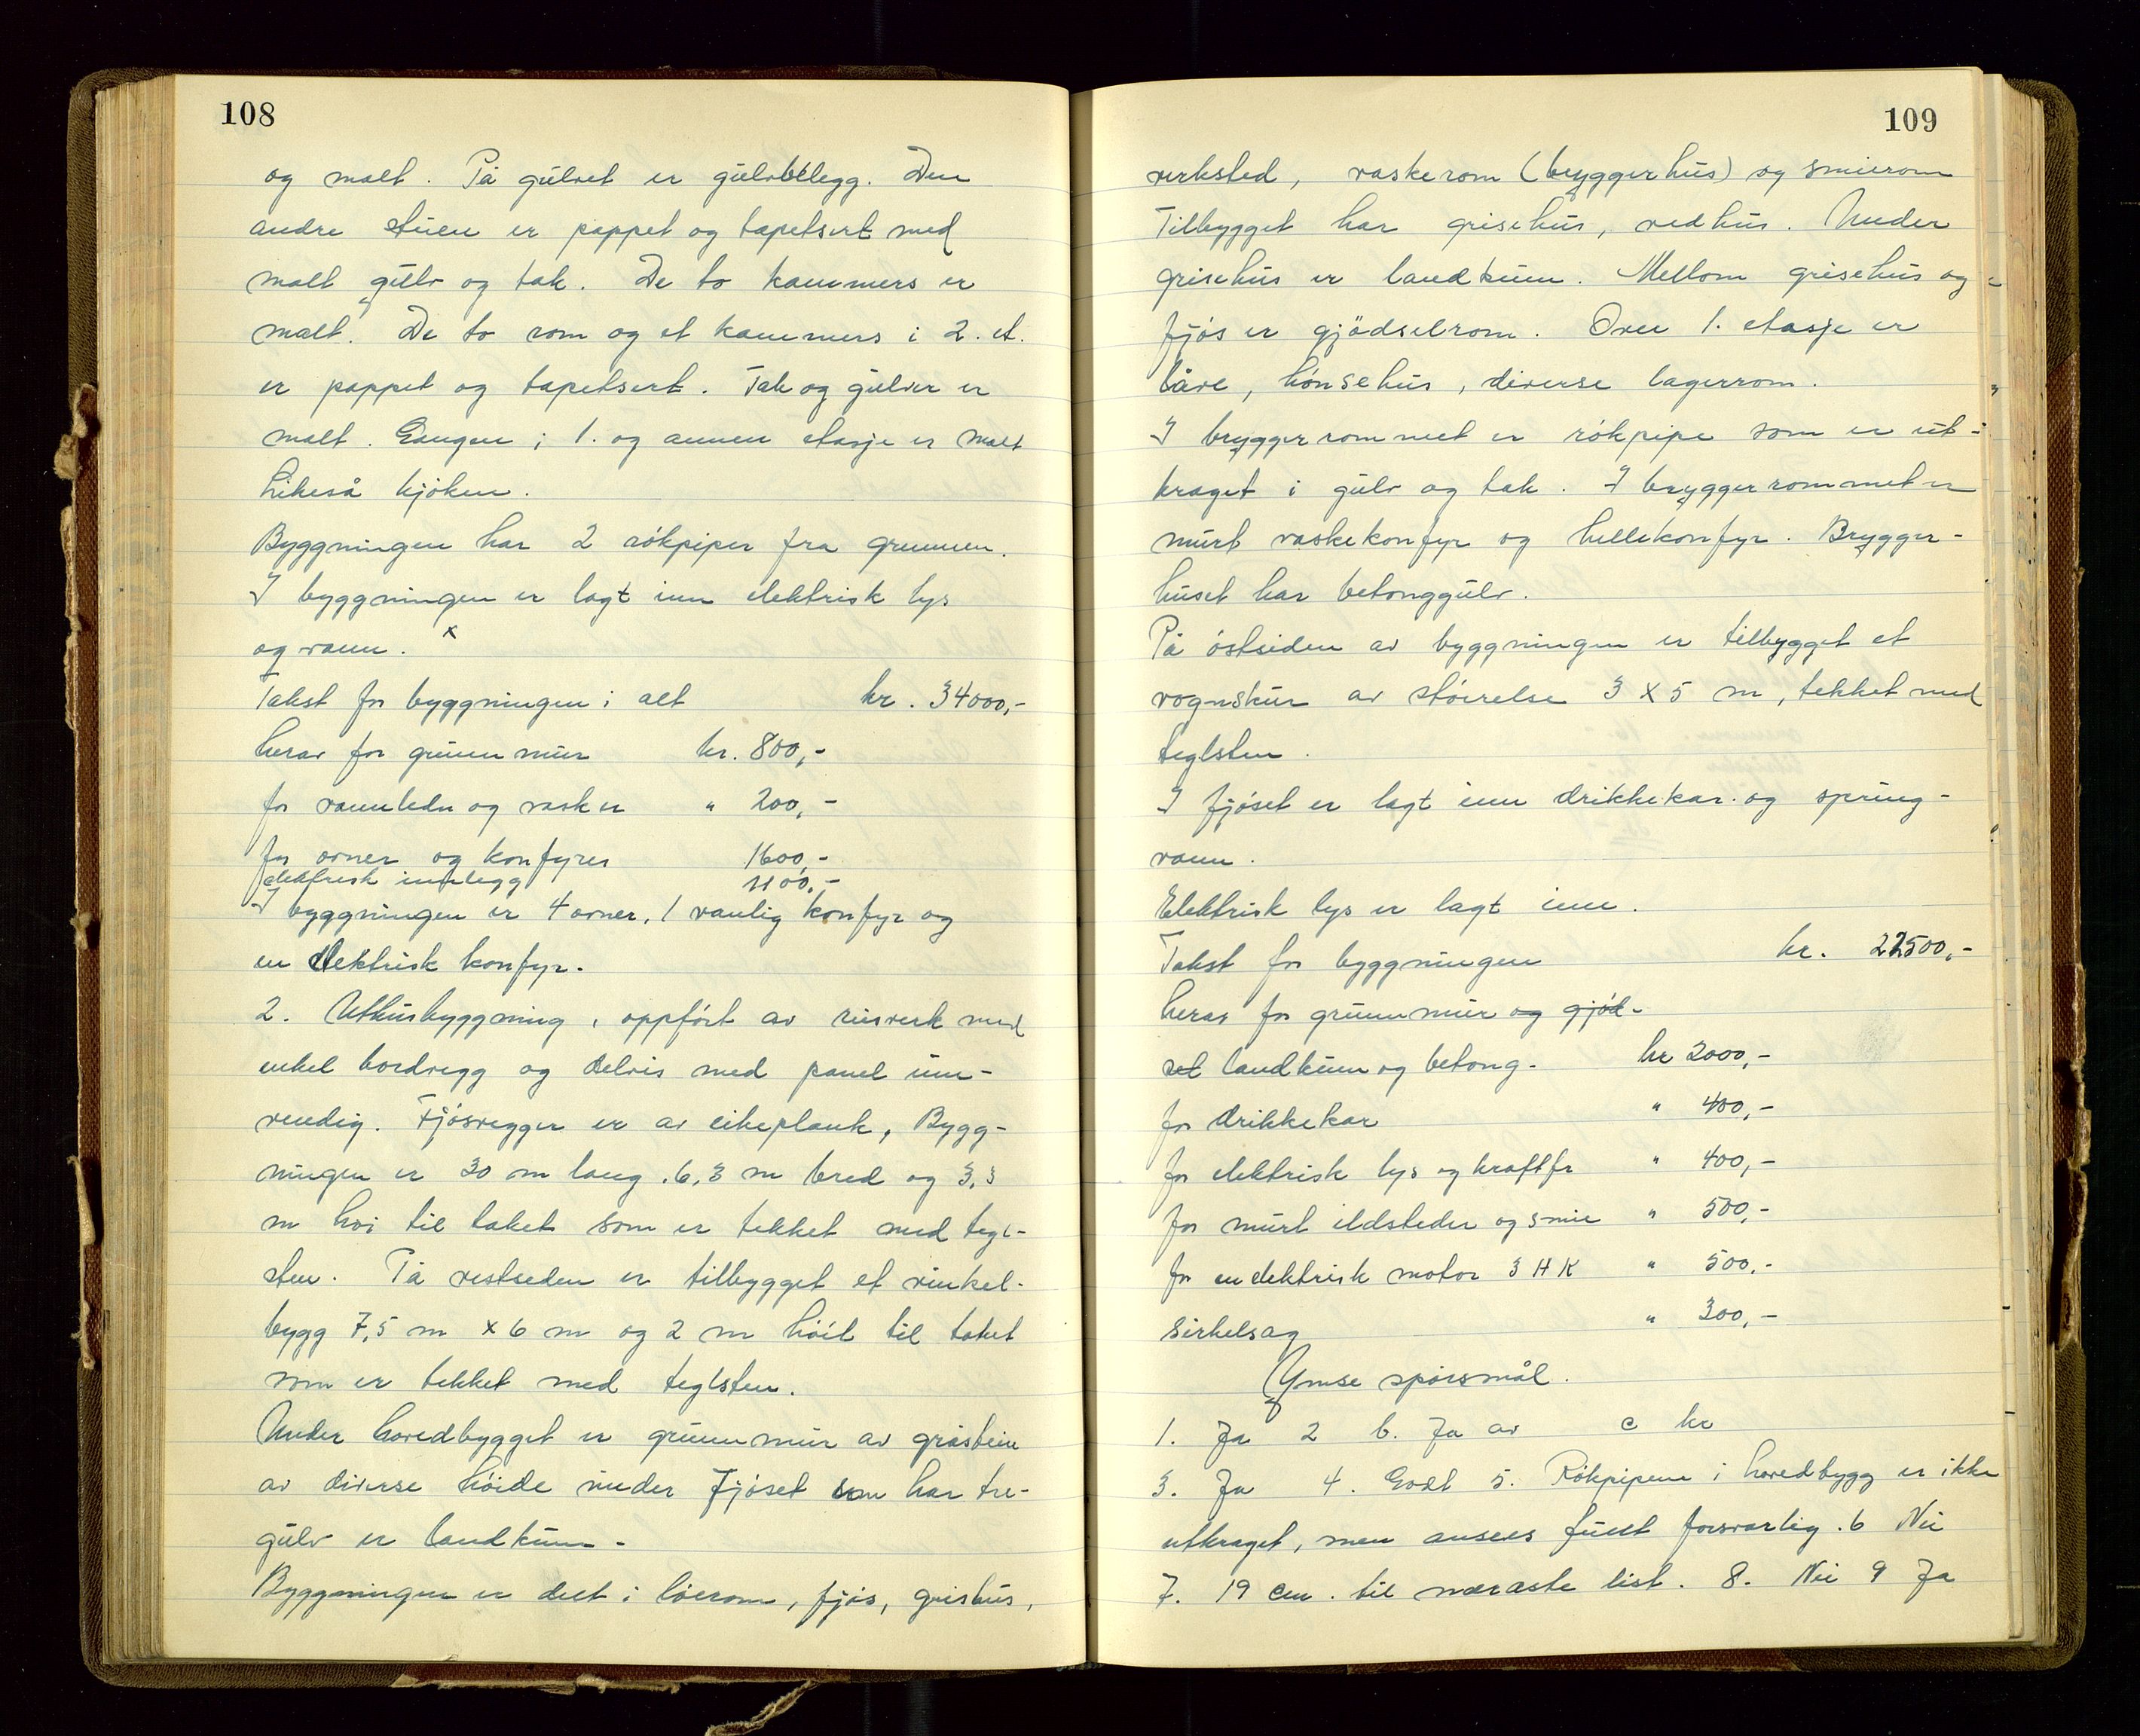 108
og malt. På gulvet er gulvbelegg. Den
andre stuen er pappet og tapetsert med
malt gulv og tak. De to kammers er
malt. De to rom og et kammers i 2. et.
er pappet og tapetsert. Tak og gulver er
malt. Gangen i 1. og annen etasje er malt
Likeså kjøken.
Byggningen har 2 rökpiper fra grunnen.
I byggningen er lagt inn elektrisk lys
og vann. x
Takst for byggningen i alt kr. 34000,-
herav for grunnmur kr. 800,-
for vannledn og vasker " 200,-
for ovner og konfyrer 1600,-
elektrisk innlegg 1100,-
I byggningen er 4 ovner, 1 vanlig konfyr og
en elektrisk konfyr.
2. Uthusbyggning, oppfört av risverk med
enkel bordvegg og delvis med panel inn-
vendig. Fjösvegger er av eikeplank, Bygg-
ningen er 30 m lang. 6,3 m bred og 3,3
m höi til taket som er tekket med tegl-
sten. På vestseden er tilbygget et vinkel-
bygg 7,5 m x 6 m og 2 m höit til taket
som er tekket med teglsten.
Under hovedbygget er grunnmur av gråstein
av diverse höide under fjöset som har tre-
gulv er landkum-
Byggningen er delt i löerom, fjös, grishus,
109
verksted, vaskerom (bryggerhus) og smierom
Tilbygget har grisehus, vedhus. Under
grisehus er landkum. Mellom grisehus og
fjös er gjödselrom. Over 1. etasje er
låve, hönsehus, diverse lagerrom.
I bryggerrommet er rökpipe som er ut-
kraget i gulv og tak. I bryggerrommet er
murt vaskekonfyr og hellekonfyr. Brygger-
huset har betonggulv.
På östsiden av byggningen er tilbygget et
vognskur av störrelse 3 x 5 m, tekket med
teglsten.
I fjöset er lagt inn drikkekar og spring-
vann.
Elektrisk lys er lagt inn.
Takst for byggningen kr. 22500,-
herav for grunnmur og gjöd-
sel landkum og betong- kr 2000,-
for drikkekar " 400,-
for elektrisk lys og kraftfr " 400,-
for murt ildsteder og smie " 500,-
for en elektrisk motor 3 H K " 500,-
sirkelsag " 300,-
Ymse spörsmål.
1. Ja 2 b. Ja av c kr
3. Ja 4. Godt 5. Rökpipene i hovedbygg er ikke
utkraget, men ansees fullt forsvarlig. 6 Nei
7. 19 cm. til næraste list. 8. Nei 9 Ja